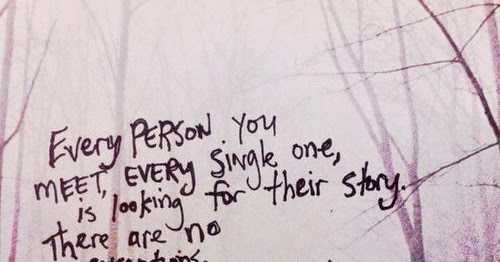 Every PERSON you
MEET, EVERY single one,
is looking for their story.
There are no
exceptions.